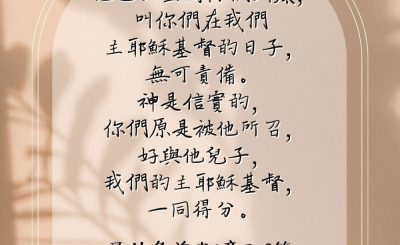 叫你們在我們
主耶穌基督的日子，
無可責備。
神是信實的，
你們原是被他所召，
好與他兒子，
我們的主耶穌基督，
一同得分。